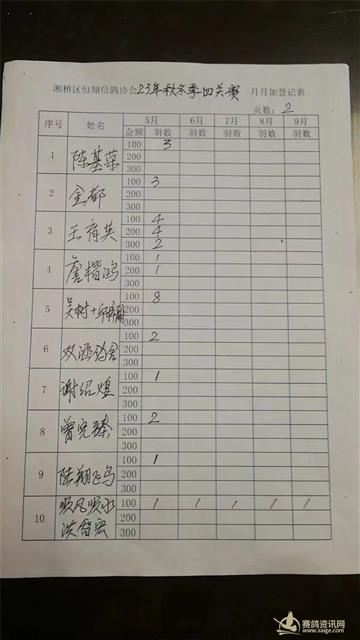 湘桥区恒翔信鸽协会23年秋冬季四关赛 月月加登记表
页数:2
序号 姓名 5月 6月 7月 8月 9月
金额 羽数 羽数 羽数 羽数 羽数
1 陈基荣 100 3
200
300
2 金都 100 3
200
300
3 王育英 100 4
200 4
300 2
4 詹楷鸿 100 1
200 1
300
5 吴树+ 100 8
200
300
6 双涵鸽舍 100 2
200
300
7 谢绍煌 100 1
200
300
8 曾宪臻 100 2
200
300
9 陆翔飞鸟 100 1
200
300
10 顺风顺水 100 1 1 1 1 1
200
洪 宏 300
赛鸽资讯网
www.saige.com